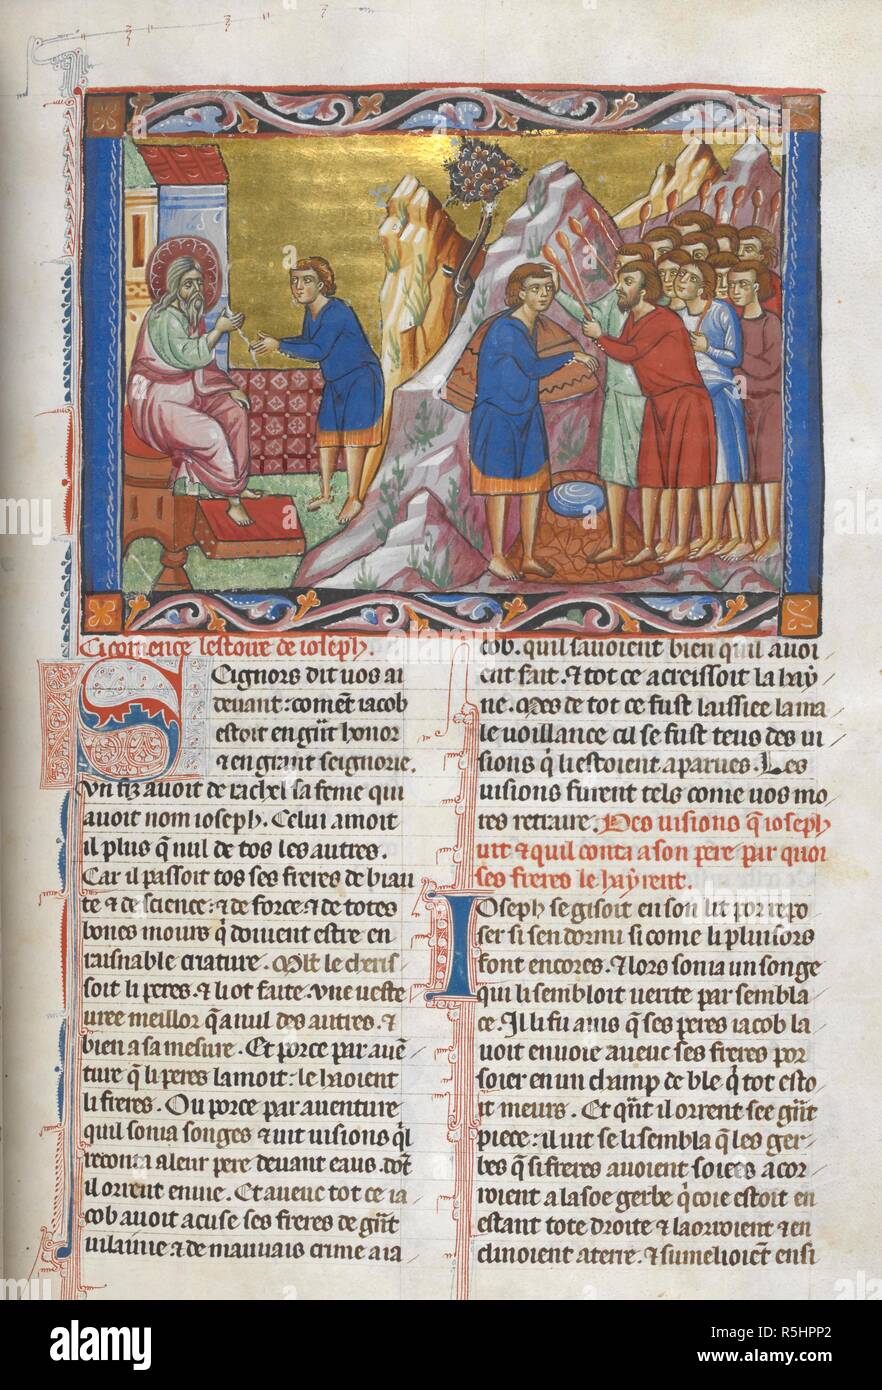 Ci comence lestoire de ioseph.
SCignors dit uos ai
deuant: coment iacob
estoit en gñt honor
& en grant seignorie.
Vn fiz auoit de rachel sa feme qui
auoit nom ioseph. Celui amoit
il plus q̄ nul de tos les autres.
Car il passoit tos ses freres de biau
te & de science: & de force & de totes
bones mours q̄ doiuent estre en
raisnable criature. Mlt le cheris
soit li peres. & li ot faite vne ueste
ure meillor q̄ a nul des autres. &
bien a sa mesure. Et porce par auē
ture q̄ li peres lamoit: le haoient
li freres. Ou porce par auenture
quil sonia songes & uit uisions q̄l
reconta a leur pere deuant eaus. dōt
il orrent enuie. Et auec tot ce ia
cob auoit acuse ses freres de gñt
uilainie & de mauuais crime a ia
cob. quil sauoient bien quil auoi
ent fait. & tot ce acreissoit la hay
ne. Mes de tot ce fust laissiee la ma
le uoillance cil se fust teus des ui
sions q̄ li estoient aparues. Les
uisions furent tels come uos mo
res retraire. Des uisions q̄ ioseph
uit & quil conta a son pere par quoi
ses freres le hayrent.
IOseph se gisoit en son lit por repo
ser si sen dormi si come li pluisors
font encores. & lors sonia un songe
qui li sembloit uerite par sembla
ce. Il li fu auis q̄ ses peres iacob la
uoit enuoie auec ses freres por
soier en un champ de ble q̄ tot esto
it meurs. Et qñt il orrent see gñt
piece: il uit se li sembla q̄ les ger
bes q̄ si frere auoient soiees acor
roient a la soe gerbe q̄ coie estoit en
estant tote droite & laoroient & en
clinoient a terre. & sumelioiēt ensi
alamy
Image ID: R5HPP2
www.alamy.com